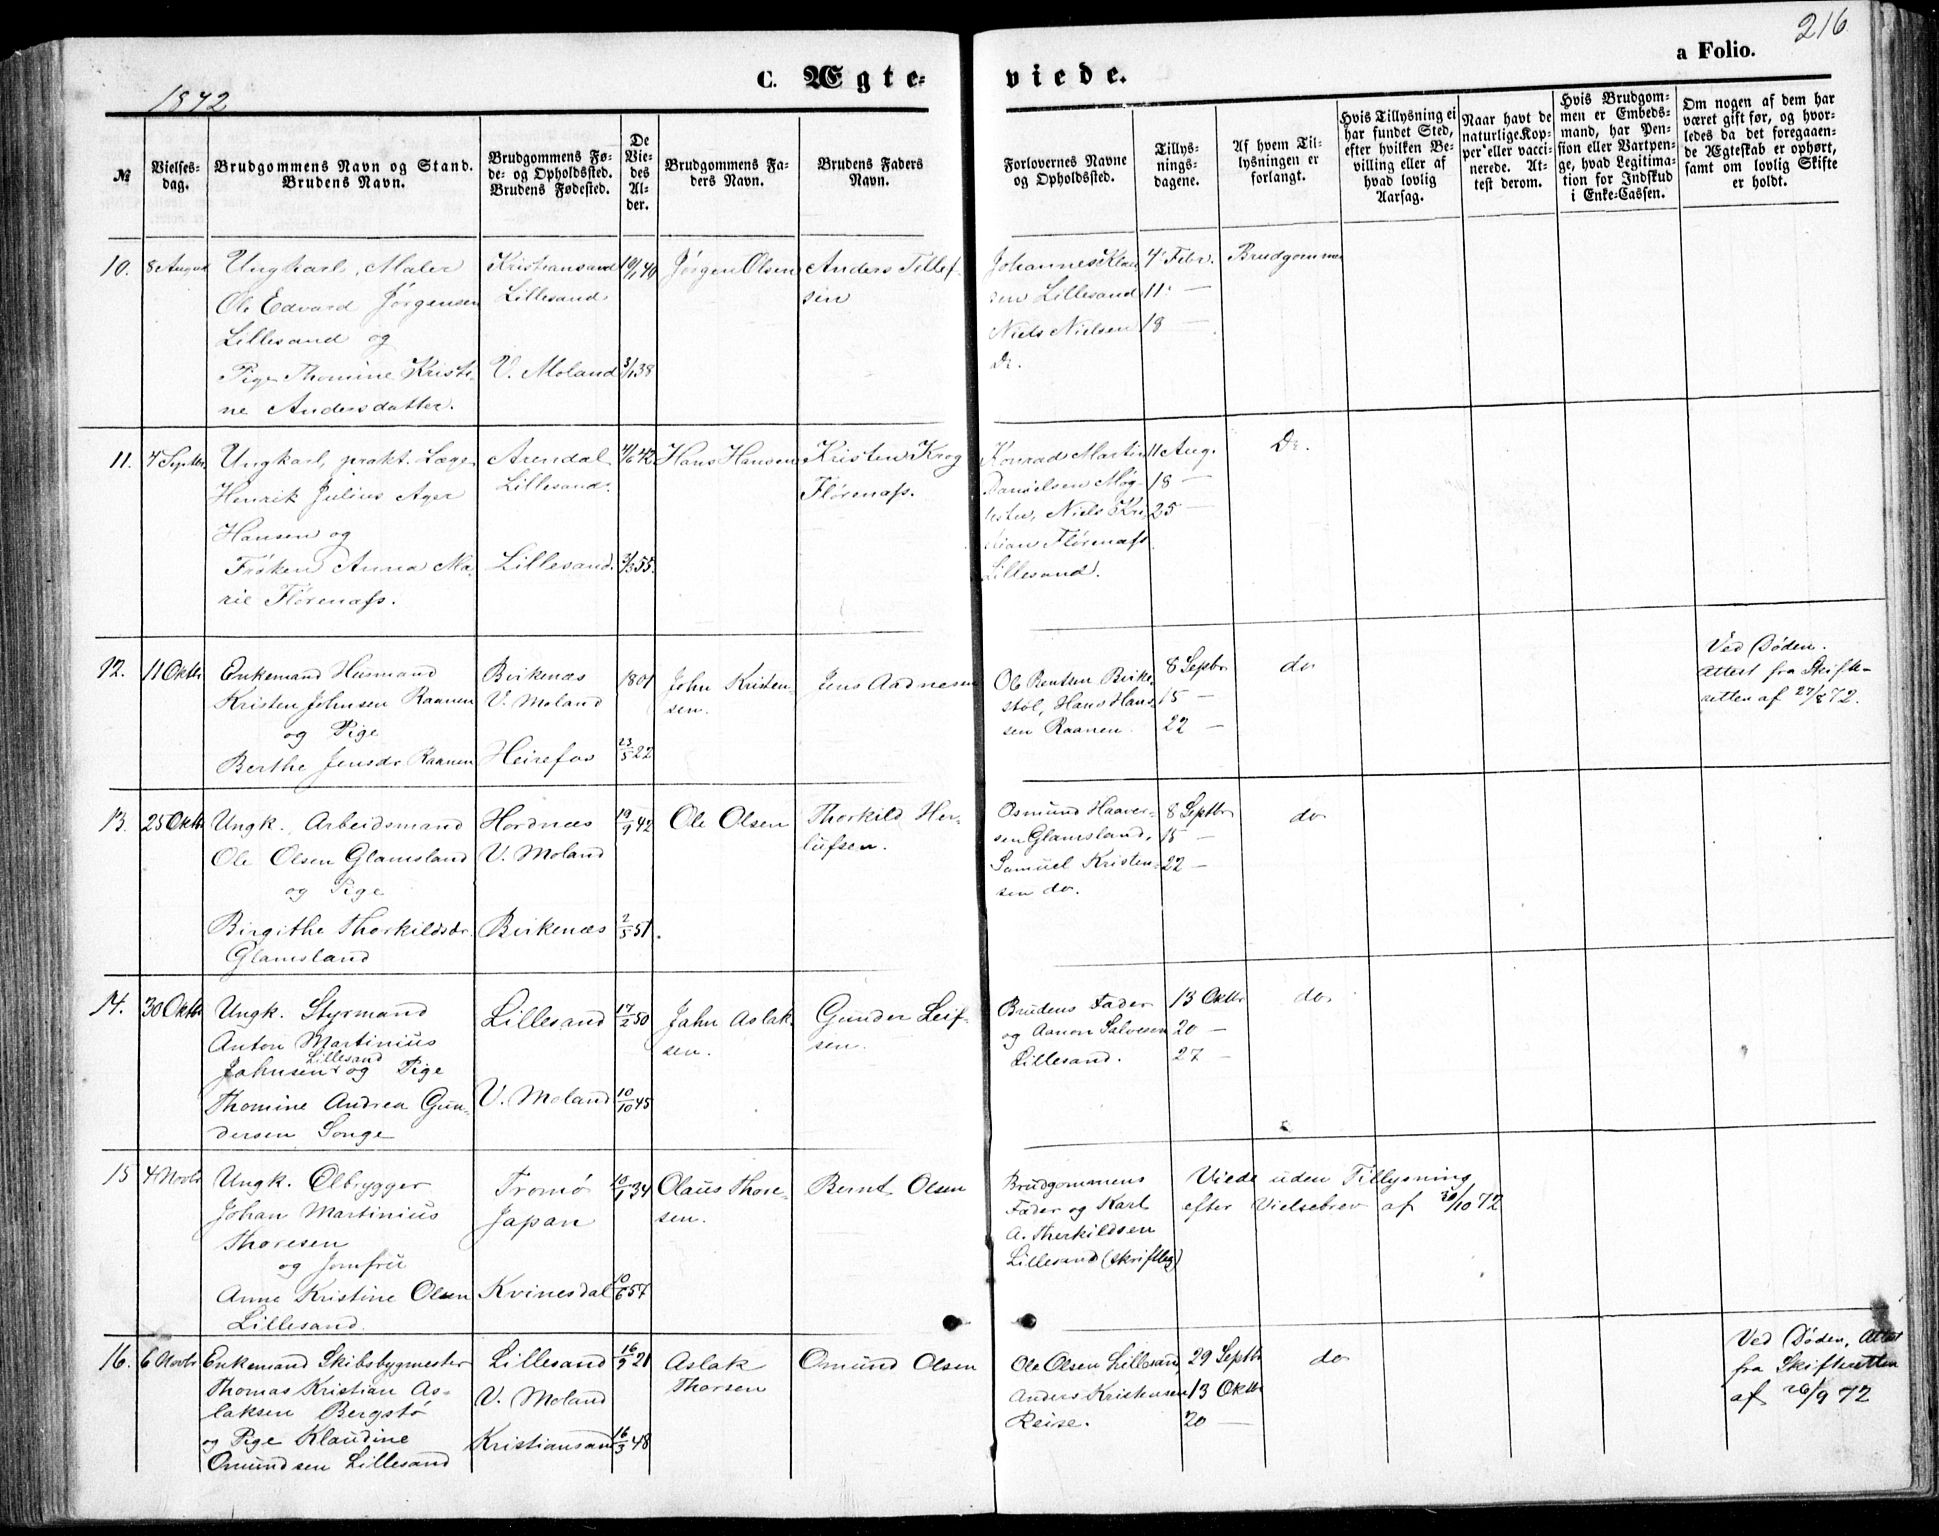 216
a Folio.
C. Ægte-
viede.
1872
№
Vielses-
dag.
Brudgommens Navn og Stand.
Brudens Navn.
Brudgommens Fø-
de- og Opholdssted.
Brudens Fødested.
De
Vie-
des
Al-
der.
Brudgommens Fa-
ders Navn.
Brudens Faders
Navn.
Forlovernes Navne
og Opholdssted.
Tillys-
nings-
dagene.
Af hvem Til-
lysningen er
forlangt.
Hvis Tillysning ei
har fundet Sted,
efter hvilken Be-
villing eller af
hvad lovlig
Aarsag.
Naar havt de
naturlige Kop-
per eller vacci-
nerede. At-
test derom.
Hvis Brudgom-
men er Embeds-
mand, har Pen-
sion eller Vartpen-
ge, hvad Legitima-
tion for Indskud
i Enke-Cassen.
Om nogen af dem har
været gift før, og hvor-
ledes da det foregaaen-
de Ægteskab er ophørt,
samt om lovlig Skifte
er holdt.
10.
8 August
Ungkarl, Maler
Ole Edvard Jørgensen
Lillesand og
Pige Thomine Kristi-
ne Andersdatter.
Kristiansand
Lillesand
V. Moland
19/1 40
3/1 38
Jørgen Olsen
Anders Tellef-
sen
Johannes Klau
sen Lillesand
Niels Nielsen
Do.
4 Febr.
11 —
18 —
Brudgommen
11.
4 Septbr
Ungkarl, prakt. Læge
Henrik Julius Ager
Hansen og
Frøken Anna Ma-
rie Flørenass.
Arendal
Lillesand.
Lillesand.
4/6 42
3/3 55
Hans Hansen
Kristen Krog
Flørenass.
Konrad Martin
Danielsen Møg-
lestu, Niels Kri
stian Flørenass
Lillesand.
11 Aug.
18 —
25 —
Do.
12.
11 Oktb
Enkemand Husmand
Kristen Johnsen Raanen
og Pige
Berthe Jensdr Raanen
Birkenæs
V. Moland
Heirefos
1801
23/5 22
John Kristen-
sen.
Jens Aadnesen
Ole Bentsen Birke-
støl, Hans Hans-
sen Raanen.
8 Septbr
15 —
22 —
do
Ved Døden.
Attest fra Skifte-
retten af 27/8 72.
13.
25 Oktb
Ungk. Arbeidsmand
Ole Olsen Glamsland
og Pige
Birgithe Thorkildsdr.
Glamsland
Hordnæs
V. Moland
Birkenæs
19/9 42
2/5 51
Ole Olsen
Thorkild Her-
lufsen.
Osmund Haaver-
sen Glamsland,
Samuel Kristen-
sen do.
8 Septbr
15 —
22 —
do
14.
30 Oktb
Ungk. Styrmand
Anton Martinius
Lillesand
Jahnsen og Pige
Thomine Andrea Gun-
dersen Songe
Lillesand
V. Moland
17/2 50
10/10 45
Jahn Aslak-
sen.
Gunder Leif-
sen.
Brudens Fader
og Aanon Salvesen
Lillesand.
13 Oktbr
20 —
27 —
do
15
4 Novbr
Ungk. Ølbrygger
Johan Martinius
Thoresen
og Jomfru
Anne Kristine Olsen
Lillesand.
Tromø
Japan
Kvinesdal
10/1 34
10/6 57
Olaus Thore-
sen.
Bernt Olsen
Brudgommens
Fader og Karl
A. Therkildsen
Lillesand (skriftlig)
Viede uden Tillysning
efter Vielsebrev af 30/10 72
16.
6 Novbr
Enkemand Skibsbygmester
Thomas Kristian As-
laksen Bergstø
og Pige Klaudine
Omundsen Lillesand
Lillesand
V. Moland
Kristiansand
16/9 21
16/3 48
Aslak
Thorsen
Omund Olsen
Ole Olsen Lillesand,
Anders Kristensen
Reise.
29 Septbr
13 Oktbr
20 —
do
Ved Døden, Attest
fra Skifteretten
af 26/9 72